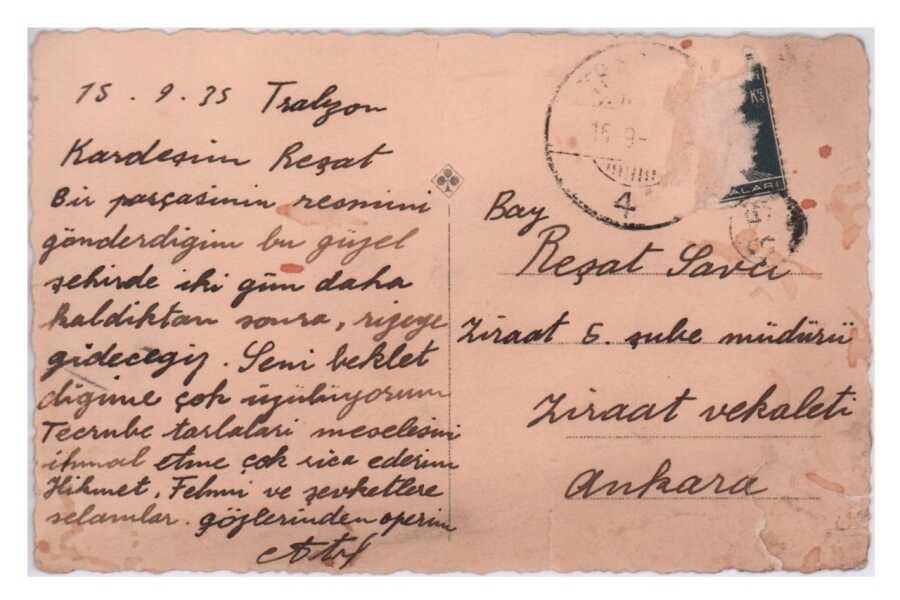 15.9.35 Trabzon
Kardeşim Reşat
Bir parçasinin resmini
gönderdiğim bu güzel
şehirde iki gün daha
kaldiktan sonra, rizeye
gideceğiz. Seni beklet
diğime çok üzülüyorum
Tecrube tarlalari meselesini
ihmal etme çok rica ederim
Hikmet, Fehmi ve şevketlere
selamlar. gözlerinden operim
Bay
Reşat Savcı
Ziraat 5. şube müdürü
Ziraat vekaleti
Ankara
16-9-
4
Kş
ALARI